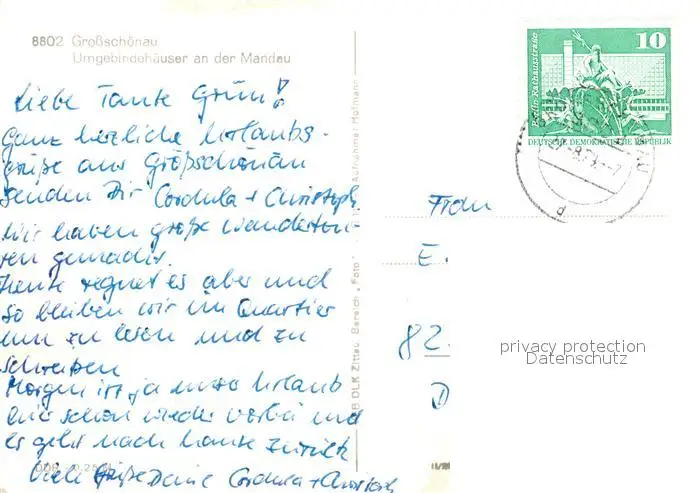 8802 Großschönau
Umgebindehäuser an der Mandau
Liebe Tante Grün!
Ganz herzliche Urlaubs-
grüße aus Großschönau
senden Dir Cordula + Christoph.
Wir haben große Wandertou-
ren gemacht.
Heute regnet es aber und
so bleiben wir im Quartier
um zu lesen und zu
schreiben
Morgen ist ja unser Urlaub
hier schon wieder vorbei und
es geht nach Hause zurück
Viele Grüße Deine Cordula + Christoph
DLK Zittau, Bereich „Foto“
Aufnahme: Hofmann
10
Berlin-Rathausstraße
DEUTSCHE DEMOKRATISCHE REPUBLIK
Frau
E.
82
D
privacy protection
Datenschutz